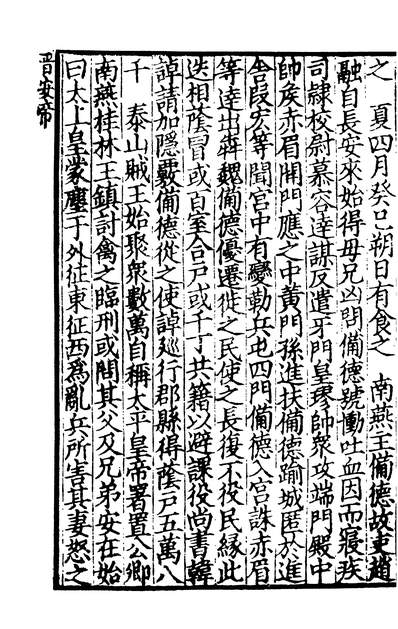 之　夏四月癸巳朔日有食之　南燕王備德故吏趙
融自長安來始得母兄凶問備德號慟吐血因而寢疾
司隸校尉慕容達謀反遣牙門皇璆帥衆攻端門殿中
帥侯赤眉開門應之中黃門孫進扶備德踰城匿於進
舍段宏等聞宮中有變勒兵屯四門備德入宮誅赤眉
等達出奔魏備德優遷徙之民使之長復不役民緣此
迭相蔭冒或百室合戶或千丁共籍以避課役尚書韓
𧨳請加隱覈備德從之使𧨳巡行郡縣得蔭戶五萬八
千　泰山賊王始聚衆數萬自稱太平皇帝署置公卿
南燕桂林王鎮討禽之臨刑或問其父及兄弟安在始
曰太上皇蒙塵于外征東征西為亂兵所害其妻怒之
晋安帝